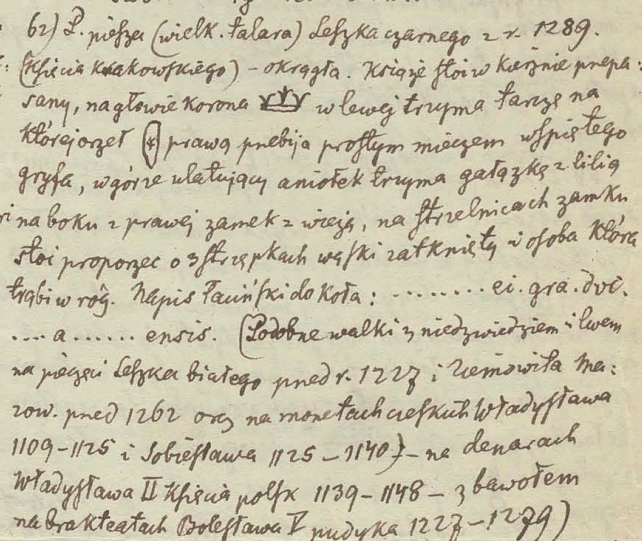 62) P. piesza (wielk. talara) Leszka czarnego z r. 1289.
(Księcia krakowskiego) – okrągła. Książę stoi w kierznie przepa:
sany, na głowie korona w lewej trzyma tarczę na
której orzeł prawą przebija prostym mieczem wspiętego
gryfa, w górze ulatujący aniołek trzyma gałązkę z lilią
na boku z prawej zamek z wieżą, na strzelnicach zamku
stoi proporzec o 3 strzępkach wąski zatknięty i osoba która
trąbi w róg. Napis łaciński do koła: ........ ei. gra. dvc.
.... a ...... ensis. (Podobne walki z niedźwiedziem i lwem
na pieczęci Leszka białego przed r. 1227 i Ziemowita Ma:
zow. przed 1262 oraz na monetach czeskich Władysława
1109–1125 i Sobiesława 1125–1140) – na denarach
Władysława II Księcia polsk 1139–1148 – z bawołem
na brakteatach Bolesława V pudyka 1227–1279)